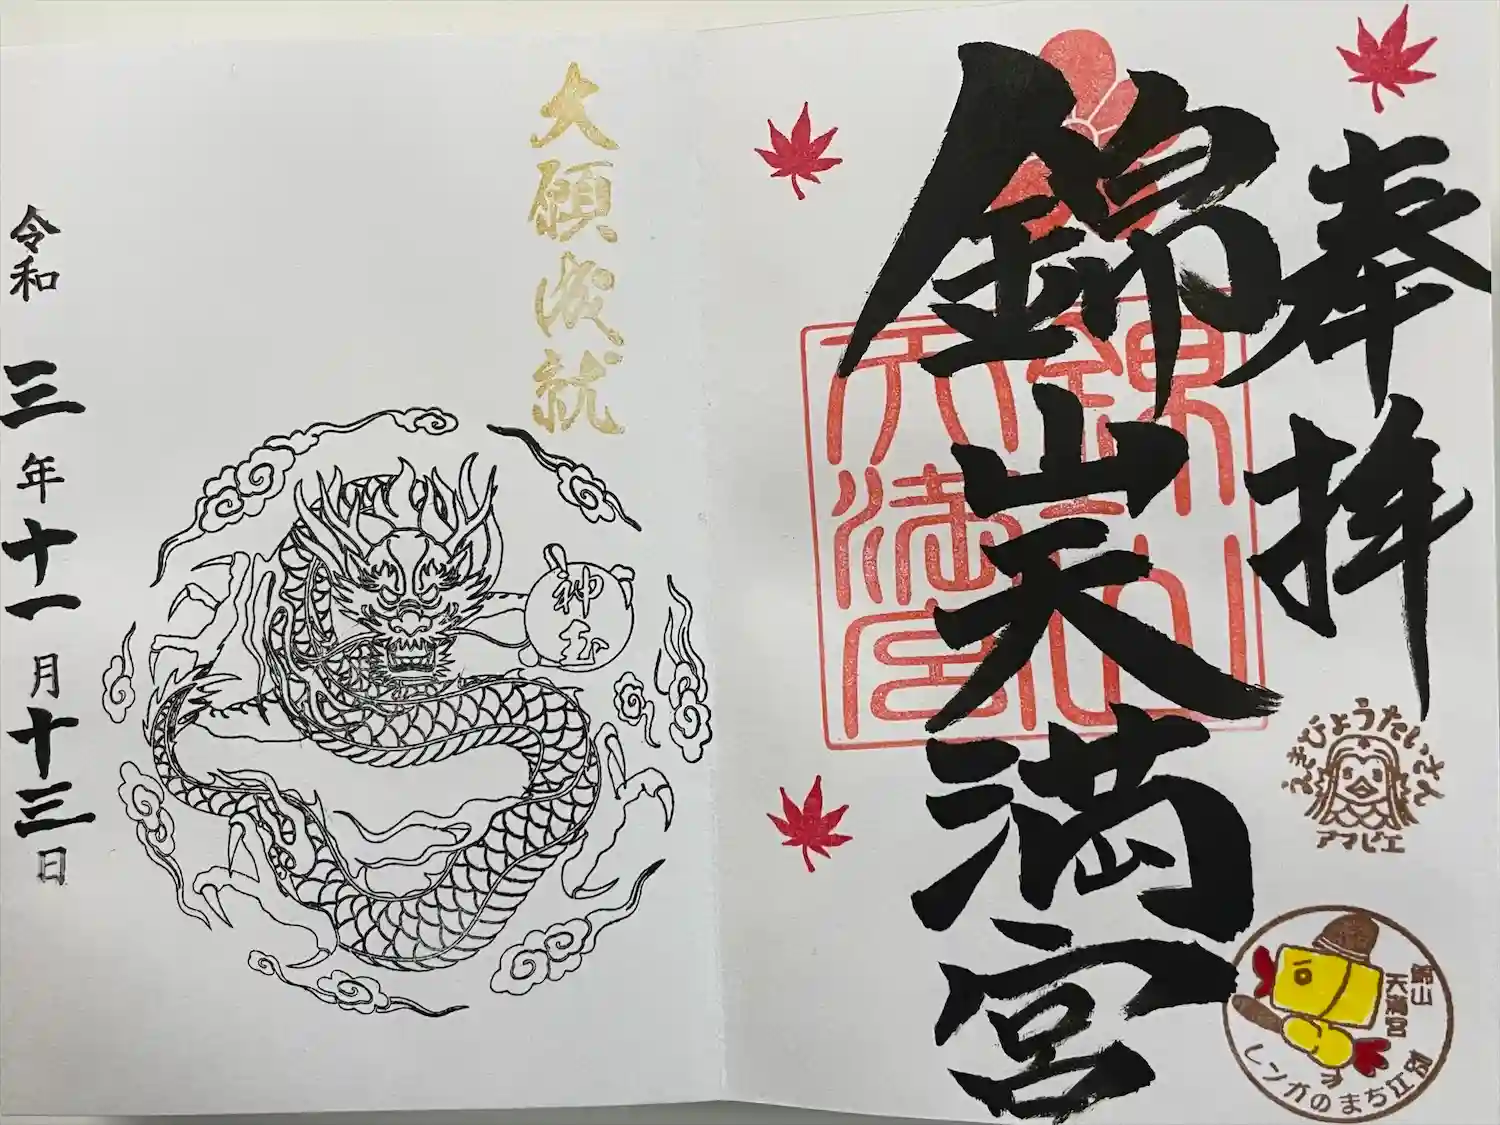 奉拝
錦山天満宮
錦山
天満宮
えきびょうたいさん
アマビエ
錦山
天満宮
レンガのまち江別
大願成就
神玉
令和三年十一月十三日